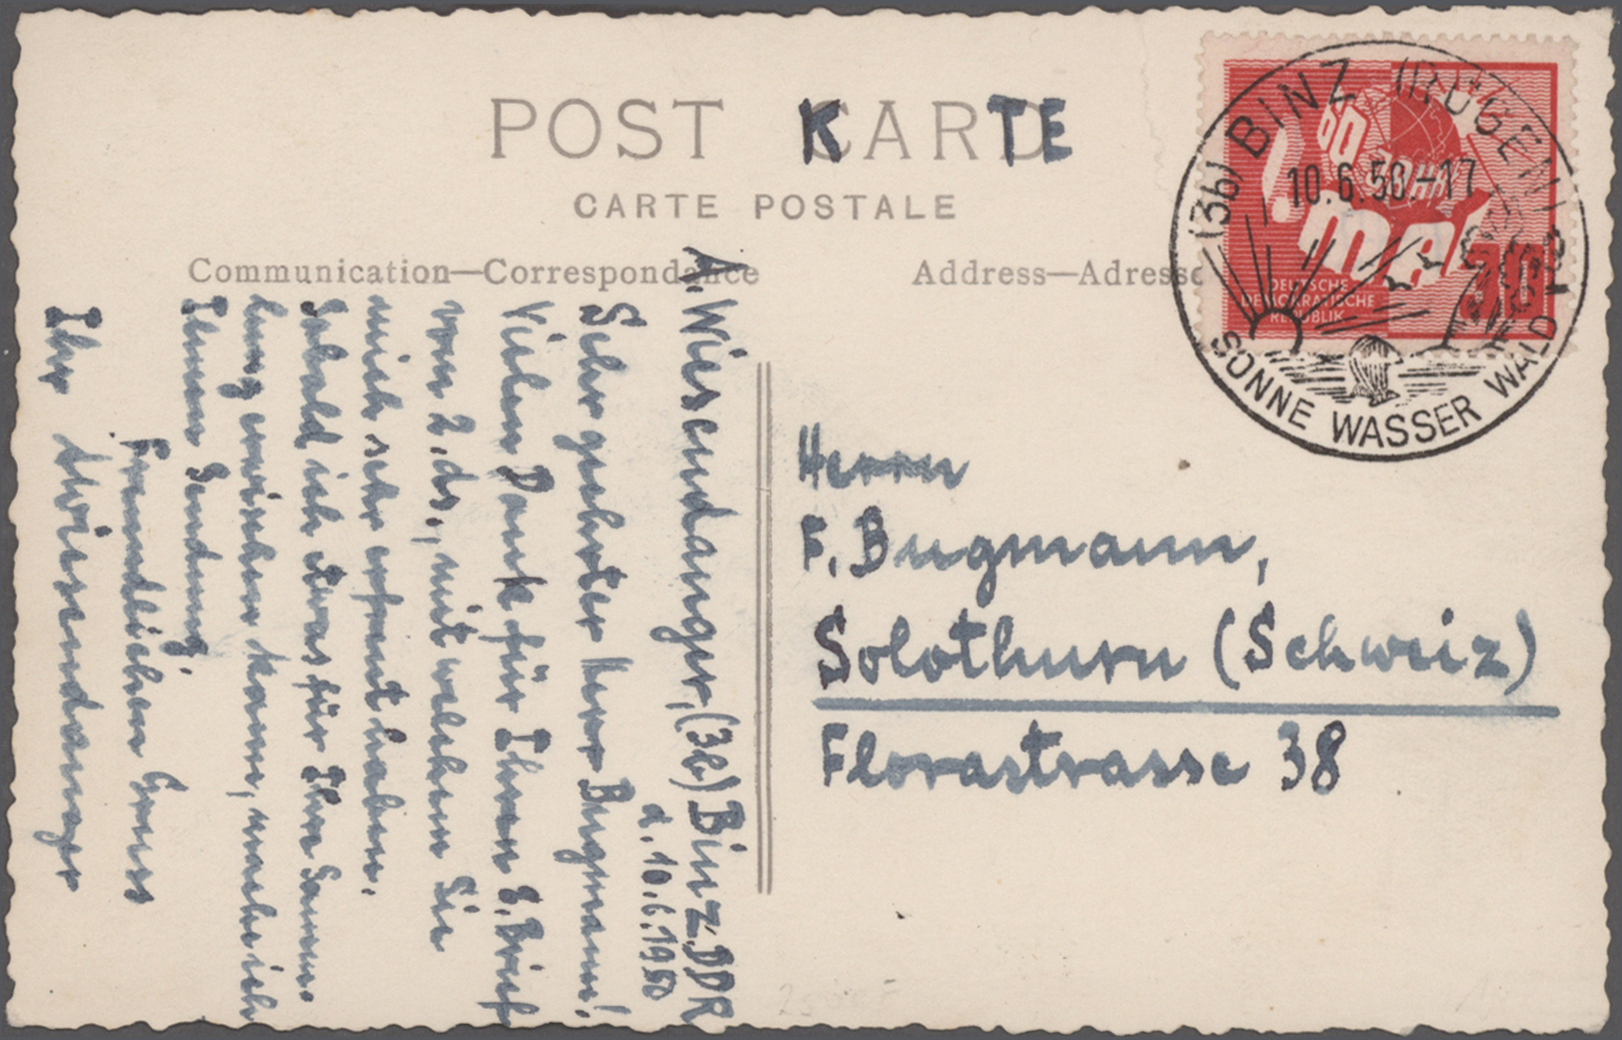 POST KARTE
CARTE POSTALE
Communication—Correspondance
Address—Adresse
(3b) BINZ (RÜGEN)
10.6.50.-17
SONNE WASSER WALD
60 JAHRE
1. MAI
30
DEUTSCHE
DEMOKRATISCHE
REPUBLIK
A. Wiesendanger, (3b) Binz, DDR
d. 10.6.1950
Sehr geehrter Herr Bugmann!
Vielen Dank für Ihren l. Brief
vom 2. ds., mit welchem Sie
mich sehr erfreut haben.
Sobald ich etwas für Ihre Samm-
lung erwischen kann, mache ich
Ihnen Sendung.
Freundlichen Gruss
Ihr AWiesendanger
Herrn
F. Bugmann,
Solothurn (Schweiz)
Florastrasse 38